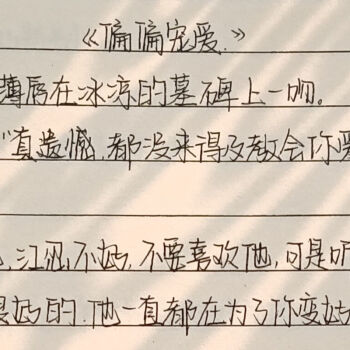 《偏偏宠爱》
薄唇在冰凉的墓碑上一吻。
"真遗憾,都没来得及教会你爱
,江忍不好,不要喜欢他,可是听
是好的.他一直都在为了你变好